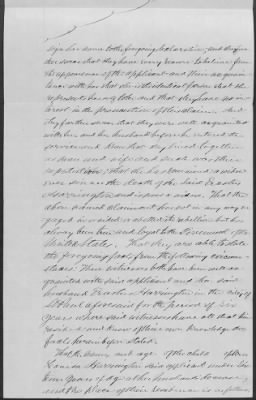 sign her name to the foregoing declaration; and they further
swear that they have every reason to believe from
the appearance of the applicant and their acquain
tance with her that she is the identical person she
represents herself to be and that they have no in
terest in the prosecution of this claim. And
they further swear that they were well acquainted
with her and her husband before he entered the
service and know that they lived together
as man and wife and such was their
reputation; that she has remained a widow
ever since the death of the said
Harrington and is now a widow. That the
above named claimant has not in any way en
gaged in or aided or abetted the rebellion but has
always been true and loyal to the Government of the
United States. That they are able to state
the foregoing facts from the following circum
stances: These witnesses both have been well ac
quainted with said applicant and her said
husband Harrington in the City of
aforesaid for the period of six
years where said witnesses have all that time
resided and know of their own knowledge the
facts herein before stated.
That the name and age of the child of them
Harrington said applicant under six
teen years of age at her husband's decease,
and the place of their residence is as follows